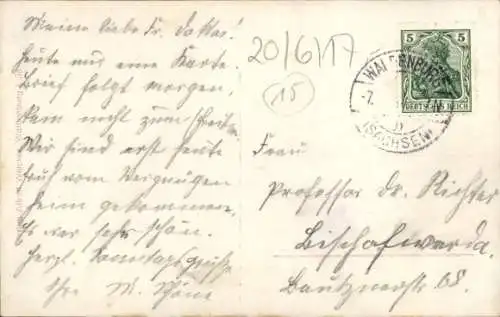 Meine liebe Fr. Doktor!
heute nur eine Karte.
Brief folgt morgen,
kam nicht zum Schreiben
Wir sind erst heute
früh vom Vergnügen
heim gekommen.
Es war sehr schön.
Herzl. Sonntagsgrüße
Ihre M. Schöne
20/6/17
15
5 5
DEUTSCHES REICH
WALDENBURG
-7.
(SACHSEN)
Frau
Professor Dr. Richter
Bischofwerda.
Bautznerstr 68.